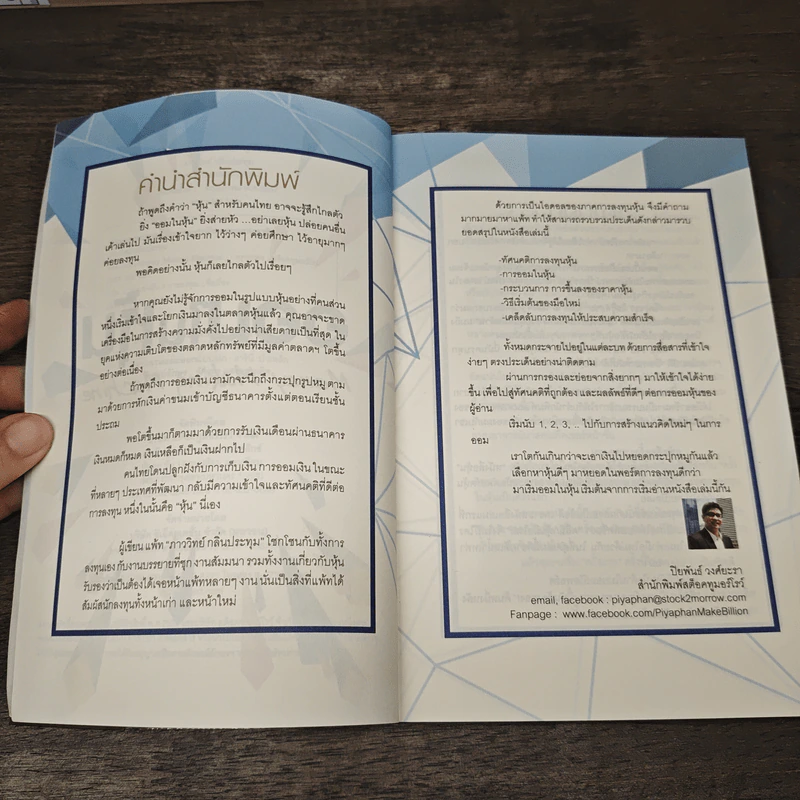 คำนำสำนักพิมพ์
ถ้าพูดถึงคำว่า "หุ้น" สำหรับคนไทย อาจจะรู้สึกไกลตัว
ยิ่ง "ออมในหุ้น" ยิ่งส่ายหัว ...อย่าเลยหุ้น ปล่อยคนอื่น
เค้าเล่นไป มันเรื่องเข้าใจยาก ไว้ว่างๆ ค่อยศึกษา ไว้อายุมากๆ
ค่อยลงทุน
พอคิดอย่างนั้น หุ้นก็เลยไกลตัวไปเรื่อยๆ
หากคุณยังไม่รู้จักการออมในรูปแบบหุ้นอย่างที่คนส่วน
หนึ่งเริ่มเข้าใจและโยกเงินมาลงในตลาดหุ้นแล้ว คุณอาจจะขาด
เครื่องมือในการสร้างความมั่งคั่งไปอย่างน่าเสียดายเป็นที่สุด ใน
ยุคแห่งความเติบโตของตลาดหลักทรัพย์ที่มีมูลค่าตลาดฯ โตขึ้น
อย่างต่อเนื่อง
ถ้าพูดถึงการออมเงิน เรามักจะนึกถึงกระปุกรูปหมู ตาม
มาด้วยการหักเงินค่าขนมเข้าบัญชีธนาคารตั้งแต่ตอนเรียนชั้น
ประถม
พอโตขึ้นมาก็ตามมาด้วยการรับเงินเดือนผ่านธนาคาร
เงินหมดก็หมด เงินเหลือก็เป็นเงินฝากไป
คนไทยโดนปลูกฝังกับการเก็บเงิน การออมเงิน ในขณะ
ที่หลายๆ ประเทศที่พัฒนา กลับมีความเข้าใจและทัศนคติที่ดีต่อ
การลงทุน หนึ่งในนั้นคือ "หุ้น" นี่เอง
ผู้เขียน แพ้ท "ภาววิทย์ กลิ่นประทุม" โชกโชนกับทั้งการ
ลงทุนเอง กับงานบรรยายที่ชุก งานสัมมนา รวมทั้งงานเกี่ยวกับหุ้น
รับรองว่าเป็นต้องได้เจอหน้าแพ้ทหลายๆ งาน นั่นเป็นสิ่งที่แพ้ทได้
สัมผัสนักลงทุนทั้งหน้าเก่า และหน้าใหม่
ด้วยการเป็นไอดอลของภาคการลงทุนหุ้น จึงมีคำถาม
มากมายมาหาแพ้ท ทำให้สามารถรวบรวมประเด็นดังกล่าวมารวบ
ยอดสรุปในหนังสือเล่มนี้
-ทัศนคติการลงทุนหุ้น
-การออมในหุ้น
-กระบวนการ การขึ้นลงของราคาหุ้น
-วิธีเริ่มต้นของมือใหม่
-เคล็ดลับการลงทุนให้ประสบความสำเร็จ
ทั้งหมดกระจายไปอยู่ในแต่ละบท ด้วยการสื่อสารที่เข้าใจ
ง่ายๆ ตรงประเด็นอย่างน่าติดตาม
ผ่านการกรองและย่อยจากสิ่งยากๆ มาให้เข้าใจได้ง่าย
ขึ้น เพื่อไปสู่ทัศนคติที่ถูกต้อง และผลลัพธ์ที่ดีๆ ต่อการออมหุ้นของ
ผู้อ่าน
เริ่มนับ 1, 2, 3, .. ไปกับการสร้างแนวคิดใหม่ๆ ในการ
ออม
เราโตกันเกินกว่าจะเอาเงินไปหยอดกระปุกหมูกันแล้ว
เลือกหาหุ้นดีๆ มาหยอดในพอร์ตการลงทุนดีกว่า
มาเริ่มออมในหุ้น เริ่มต้นจากการเริ่มอ่านหนังสือเล่มนี้กัน
ปิยพันธ์ วงศ์ยะรา
สำนักพิมพ์สต๊อคทูมอร์โรว์
email, facebook : piyaphan@stock2morrow.com
Fanpage : www.facebook.com/PiyaphanMakeBillion